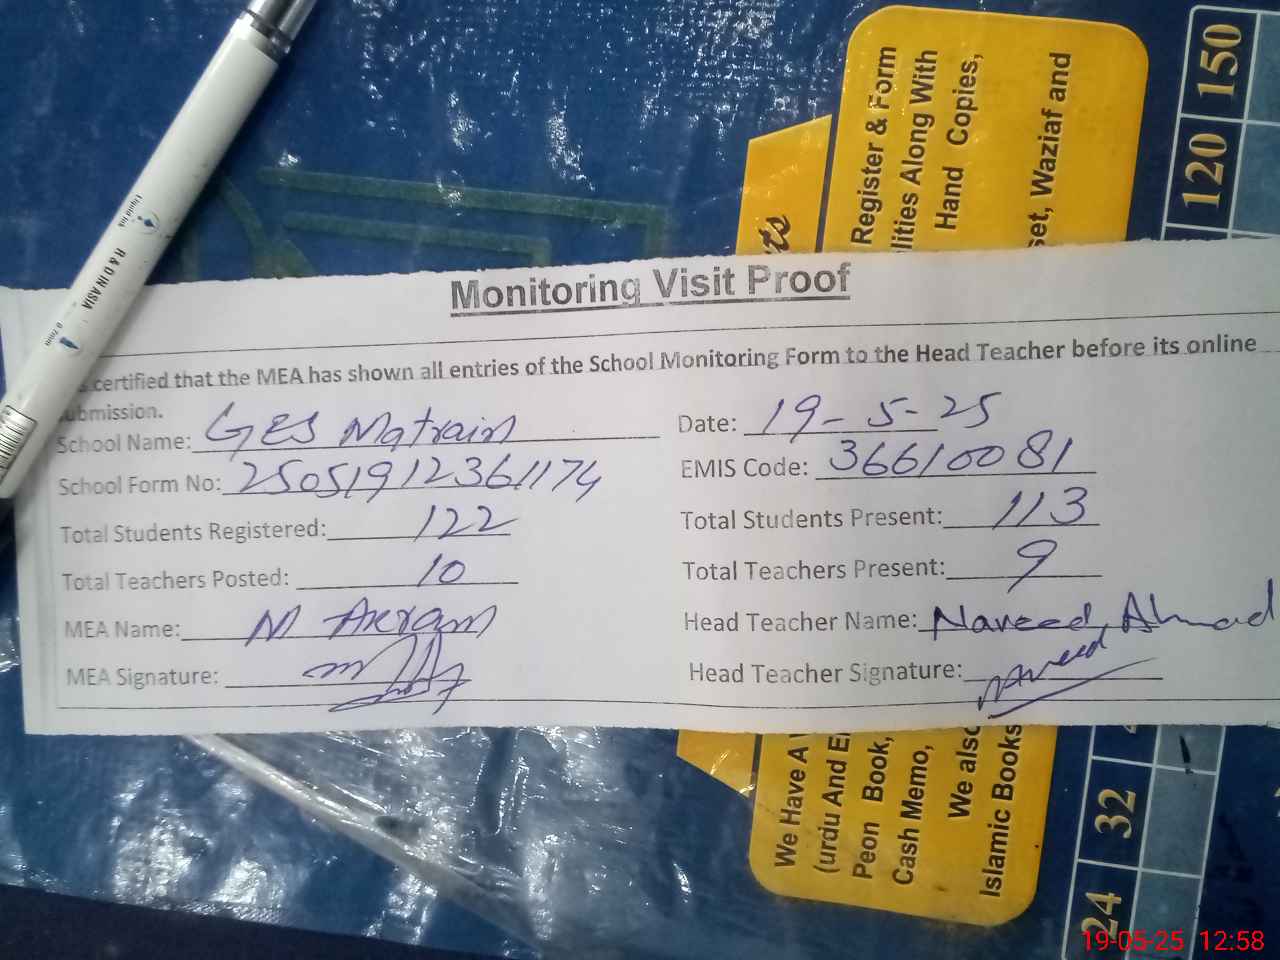 Liquid Ink
R & D IN ASIA
0.7mm
150
120
Register & Form
lities Along With
Hand Copies,
set, Waziaf and
Monitoring Visit Proof
certified that the MEA has shown all entries of the School Monitoring Form to the Head Teacher before its online
ubmission.
School Name: GES Matrain Date: 19-5-25
School Form No: 25051912361174 EMIS Code: 36610081
Total Students Registered: 122 Total Students Present: 113
Total Teachers Posted: 10 Total Teachers Present: 9
MEA Name: M Akram Head Teacher Name: Naveed Ahmad
MEA Signature: Head Teacher Signature: Naveed
We Have A
(urdu And E
Peon Book,
Cash Memo,
We also
Islamic Books
32
24
19-05-25 12:58